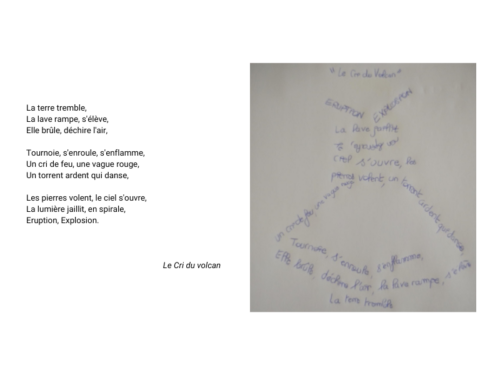 La terre tremble,
La lave rampe, s'élève,
Elle brûle, déchire l'air,
Tournoie, s'enroule, s'enflamme,
Un cri de feu, une vague rouge,
Un torrent ardent qui danse,
Les pierres volent, le ciel s'ouvre,
La lumière jaillit, en spirale,
Eruption, Explosion.
Le Cri du volcan
"Le Cri du Volcan"
ERUPTION EXPLOSION
La lave
s'ouvre, les
pierres volent, un torrent
un cri de feu, une vague rouge
Tournoie, s'enroule, s'enflamme,
Elle brûle, déchire l'air, la lave rampe, s'élève
La terre tremble